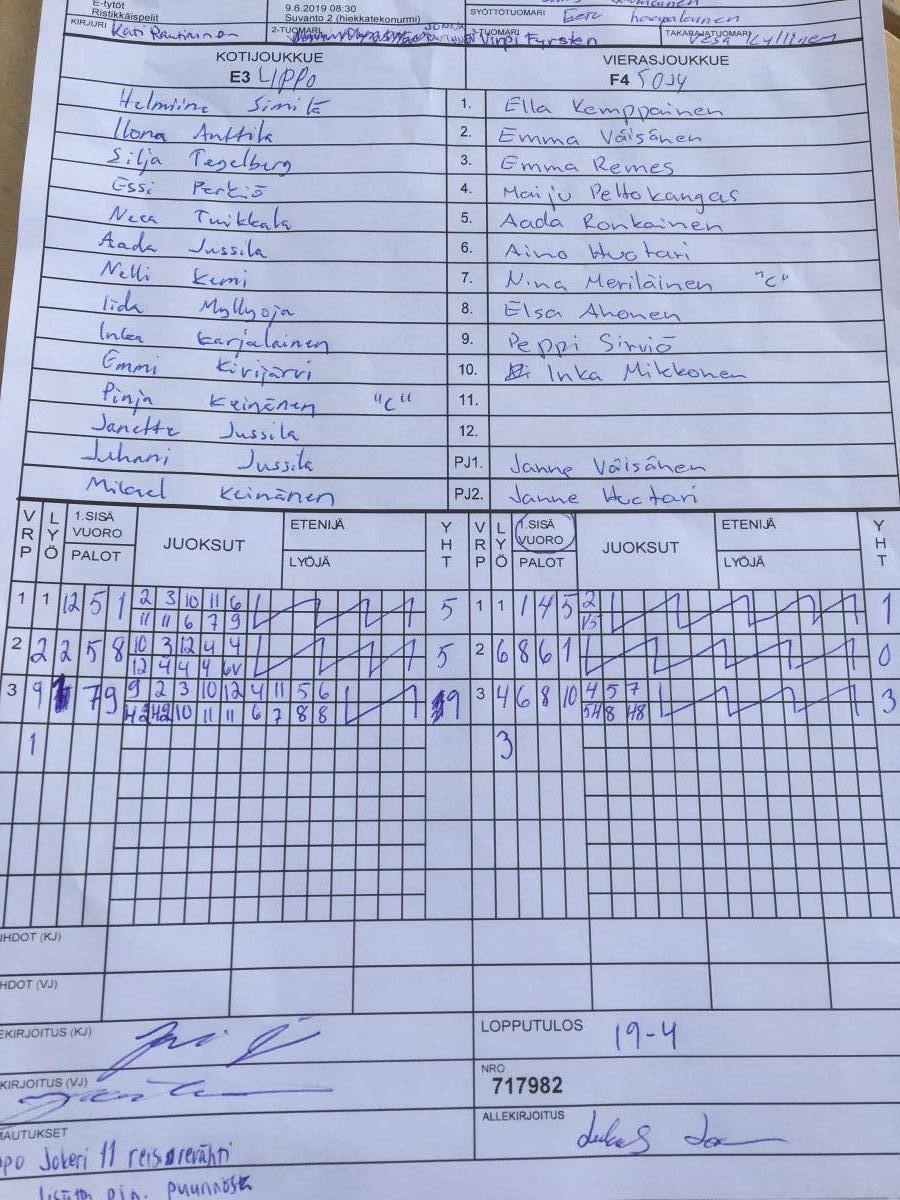 E-tytöt 9.6.2019 08:30 SYÖTTÖTUOMARI
Ristikkäispelit Suvanto 2 (hiekkatekonurmi) Eetu haapalainen
KIRJURI Kati Rautiainen 2-TUOMARI 3-TUOMARI Virpi Fyrsten TAKARAJATUOMARI Vesa Kyllinen
KOTIJOUKKUE VIERASJOUKKUE
E3 LIPPO F4 SOJY
Helmiina Similä 1. Ella Kemppainen
Ilona Anttila 2. Emma Väisänen
Silja Tegelberg 3. Emma Remes
Essi Perkiö 4. Maiju Peltokangas
Neea Tuikkala 5. Aada Ronkainen
Aada Jussila 6. Aino Huotari
Nelli Kemi 7. Nina Meriläinen "C"
Iida Myllyoja 8. Elsa Ahonen
Inka Karjalainen 9. Peppi Sirviö
Emmi Kivijärvi 10. Inka Mikkonen
Pinja Keinänen "C" 11.
Janette Jussila 12.
Juhani Jussila PJ1. Janne Väisänen
Mikael Keinänen PJ2. Janne Huotari
VRP LYÖ 1.SISÄ VUORO PALOT JUOKSUT ETENIJÄ LYÖJÄ YHT VRP LYÖ 1.SISÄ VUORO PALOT JUOKSUT ETENIJÄ LYÖJÄ YHT
1 1 12 5 1 2 3 10 11 6 5 1 1 1 4 5 2 1
11 11 6 7 9 1/5
2 2 2 5 8 10 3 12 4 4 5 2 6 8 6 1 0
12 4 4 4 6V
3 9 7 9 9 2 3 10 12 4 11 5 6 9 3 4 6 8 10 4 5 7 3
42 42 10 11 11 6 7 8 8 54 8 48
1 3
HDOT (KJ)
HDOT (VJ)
EKIRJOITUS (KJ) LOPPUTULOS 19-4
KIRJOITUS (VJ) NRO 717982
AUTUKSET ALLEKIRJOITUS
ppo Jokeri 11 reisirevähti